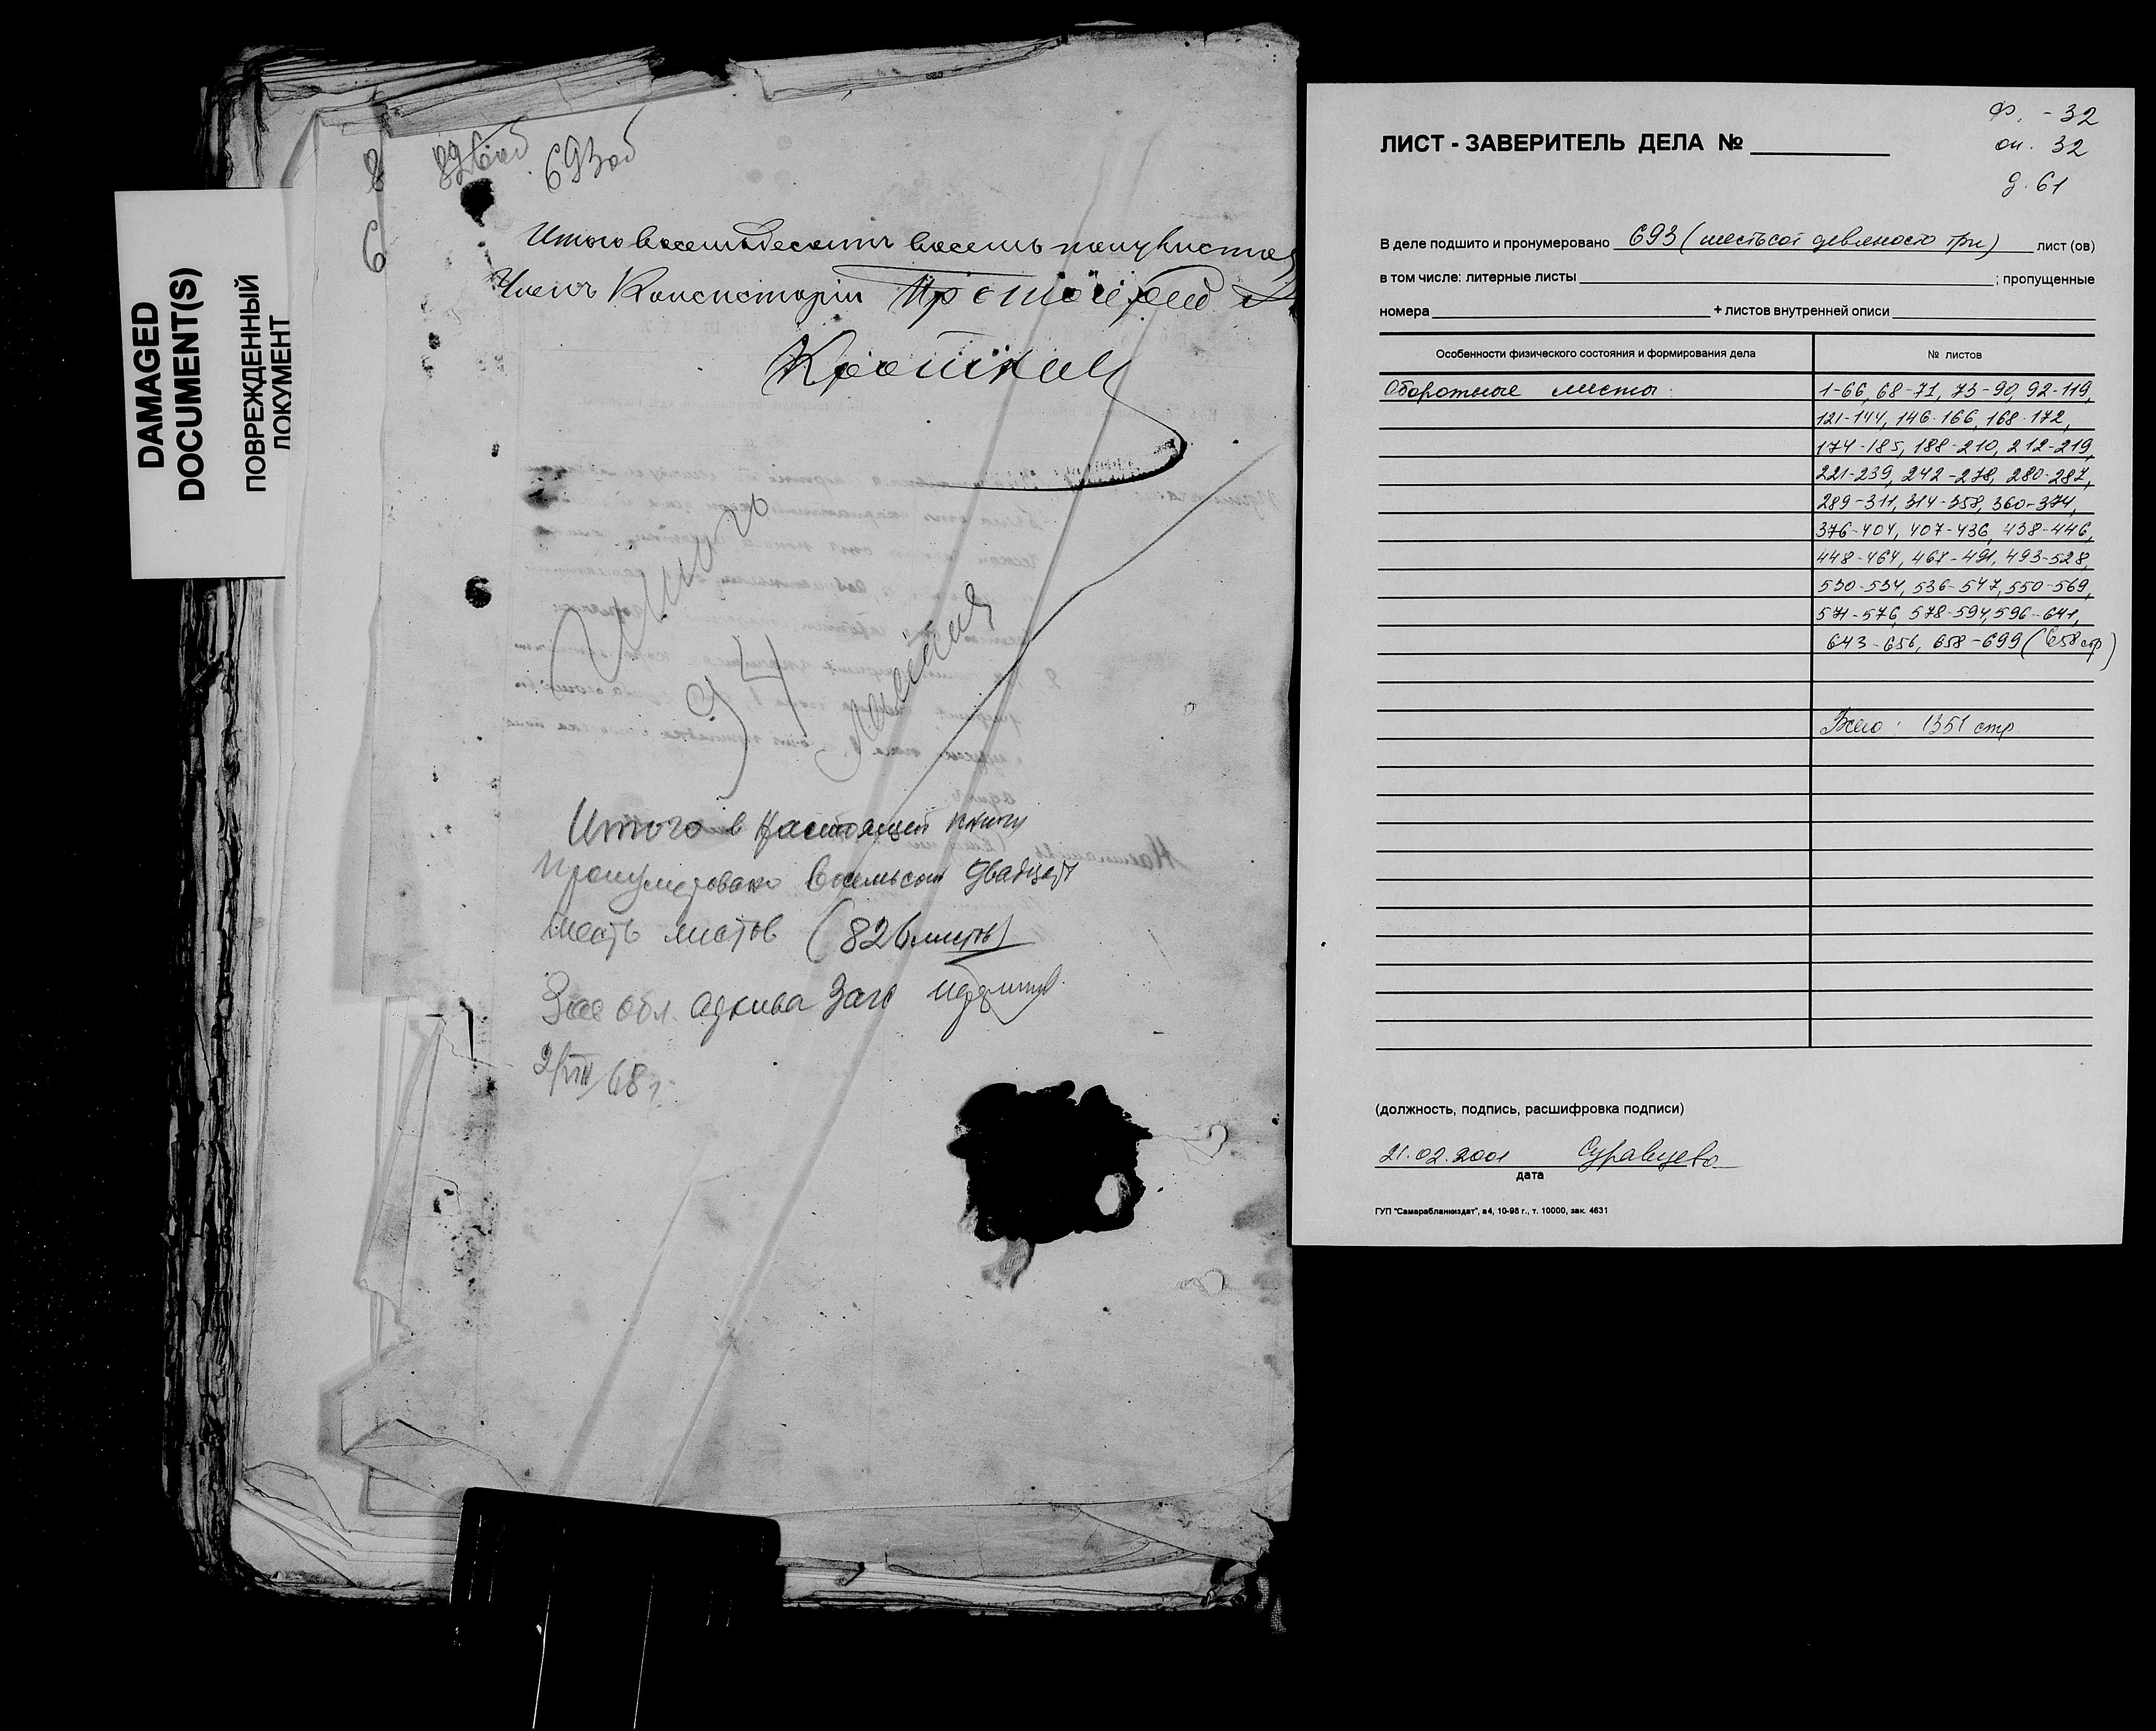 DAMAGED
DOCUMENT(S)
ПОВРЕЖДЕННЫЙ
ДОКУМЕНТ
826об 693об
Итого восемьдесятъ восемь полулистов
Членъ Консисторіи Протоіерей
Итого
94 листа
Итого в настоящей книги
пронумеровано восемьсот двадцать
шесть листов (826 листов)
Зав обл. архива Загс
2/VIII 68 г.
ф. - 32
оп. 32
д. 61
ЛИСТ - ЗАВЕРИТЕЛЬ ДЕЛА №
В деле подшито и пронумеровано 693 (шестьсот девяносто три) лист (ов)
в том числе: литерные листы ; пропущенные
номера + листов внутренней описи
Особенности физического состояния и формирования дела № листов
Оборотные листы: 1-66, 68-71, 73-90, 92-119,
121-144, 146-166, 168-172,
174-185, 188-210, 212-219,
221-239, 242-278, 280-287,
289-311, 314-358, 360-374,
376-404, 407-436, 438-446,
448-464, 467-491, 493-528,
530-534, 536-547, 550-569,
571-576, 578-594, 596-641,
643-656, 658-699 (658 стр)
Всего: 1351 стр
(должность, подпись, расшифровка подписи)
21.02.2001 Суравцева
дата
ГУП "Самарабланкиздат", а4, 10-98 г., т. 10000, зак. 4631